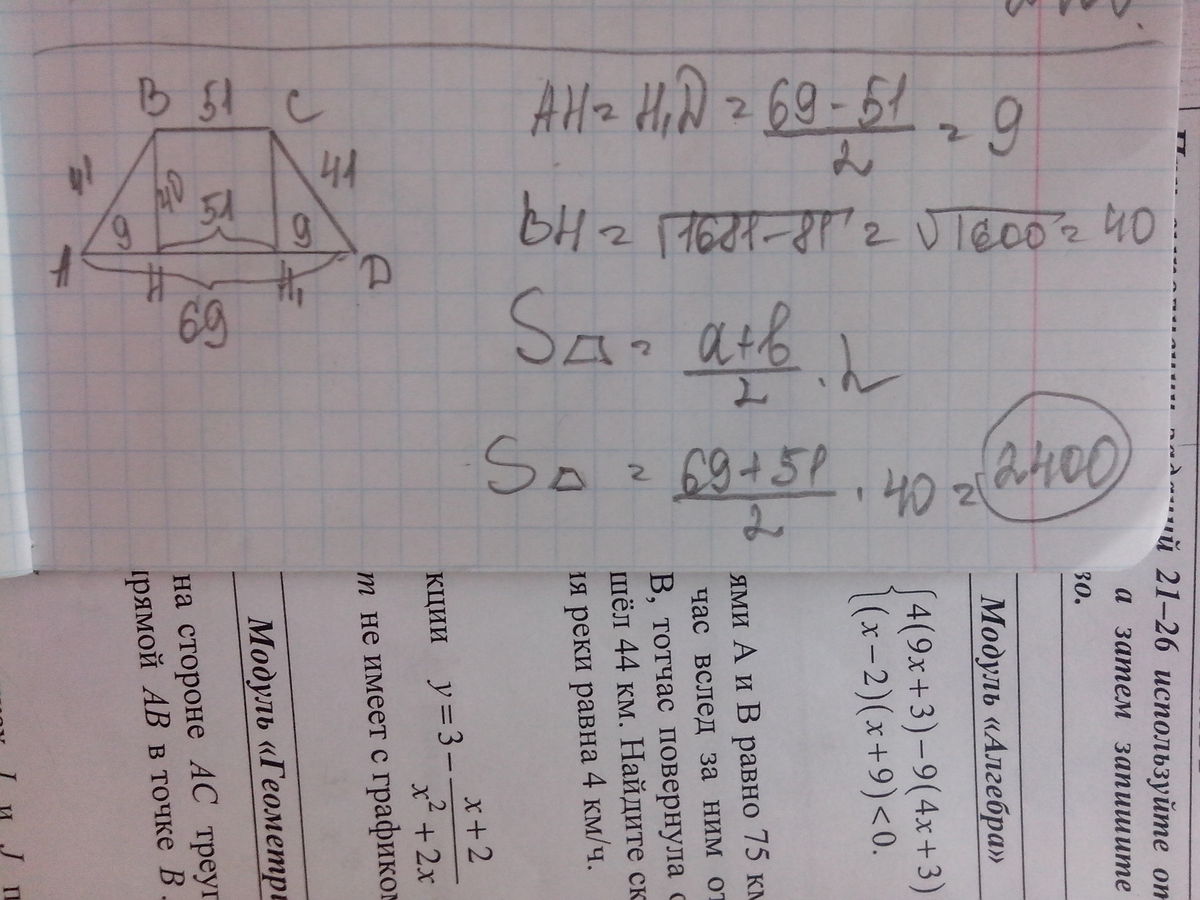 B 51 C
41 40 51 41
9 9
A H H₁ D
69
AH = H₁D = (69 - 51)/2 = 9
BH = √(1681 - 81) = √1600 = 40
S▱ = (a+b)/2 · h
S▱ = (69+51)/2 · 40 = 2400
21–26 используйте от
а затем запишите
во.
Модуль «Алгебра»
{4(9x+3)−9(4x+3)
(x−2)(x+9)<0.
ями А и В равно 75 км
час вслед за ним от
В, тотчас повернула о
шёл 44 км. Найдите ск
ия реки равна 4 км/ч.
кции y=3− (x+2)/(x²+2x)
m не имеет с графиком
Модуль «Геометри
на стороне AC треуг
прямой AB в точке B.
I и J п